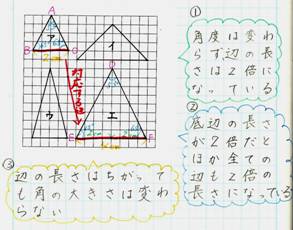 A
ア
イ
B
C
2cm
対応する辺
D
ウ
エ
E
F
4cm
①
角度は変わ
らず辺の長
さは2倍に
なっている
②
底辺の長さ
が2倍だと
ほか全ての
辺も2倍の
長さになっている
③
辺の長さはちがって
も角の大きさは変わ
らない